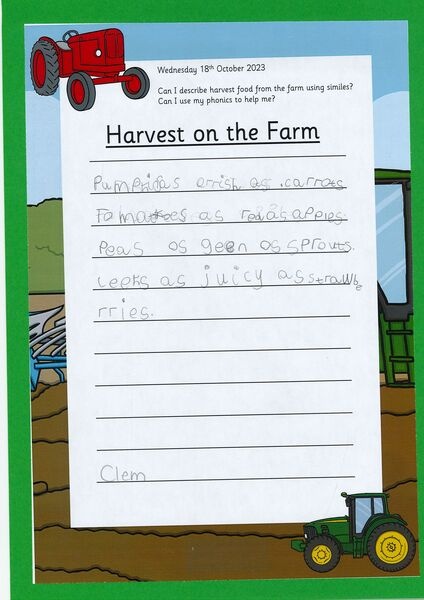 Wednesday 18th October 2023
Can I describe harvest food from the farm using similes?
Can I use my phonics to help me?
Harvest on the Farm
as carrots
as red as apples.
Peas as geen as sprouts.
Leeks as juicy as strawbe
rries.
Clem